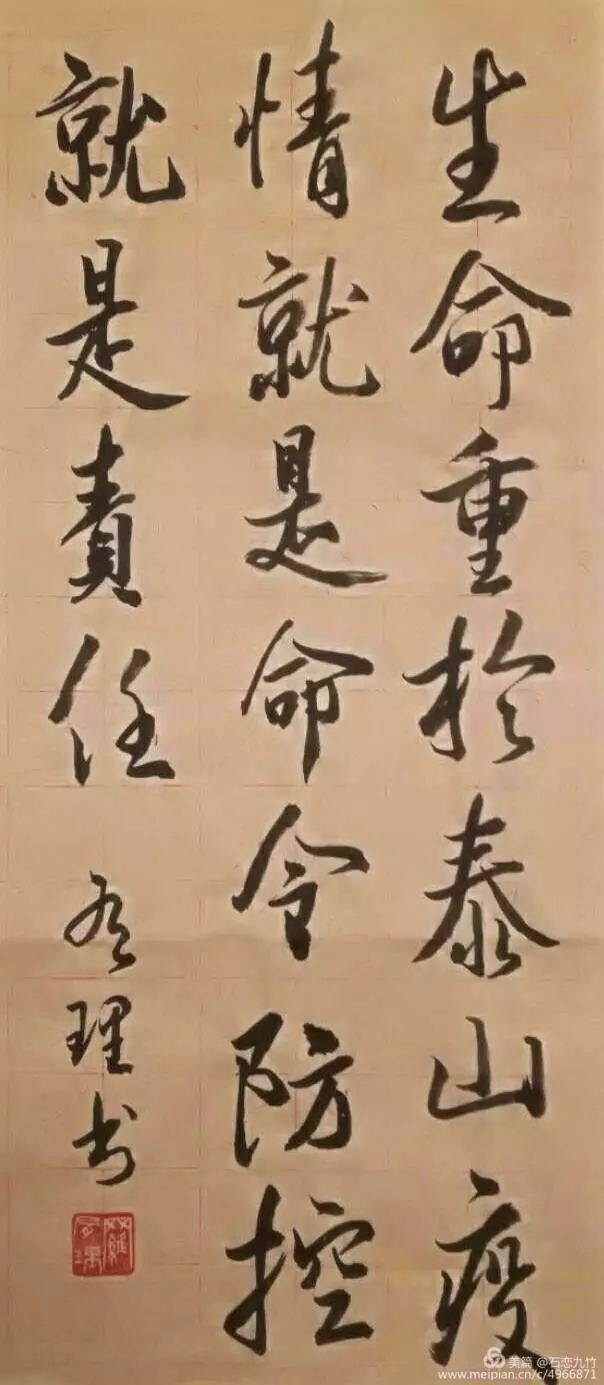 生命重於泰山疫
情就是命令防控
就是責任
有理书
美篇 @石恋九竹
www.meipian.cn/c/4966871